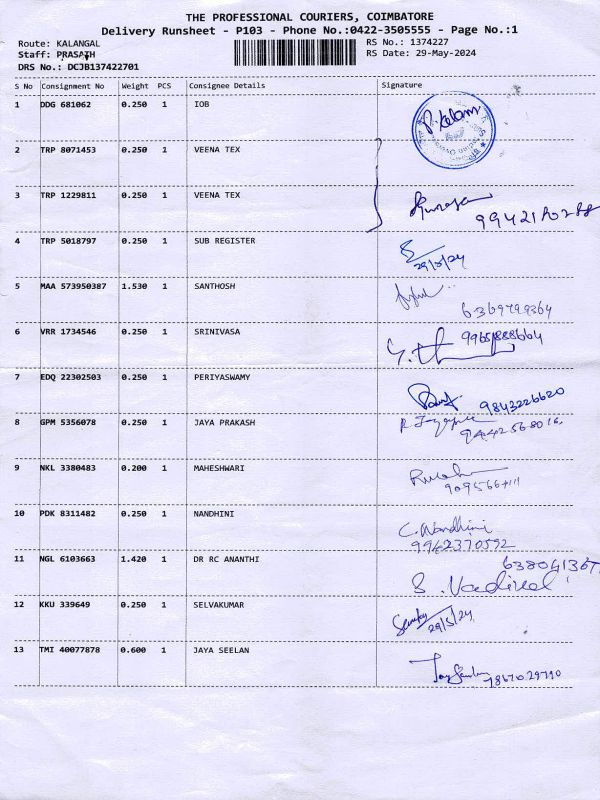 THE PROFESSIONAL COURIERS, COIMBATORE
Delivery Runsheet - P103 - Phone No.:0422-3505555 - Page No.:1
Route: KALANGAL RS No.: 1374227
Staff: PRASATH RS Date: 29-May-2024
DRS No.: DCJB137422701
S No Consignment No Weight PCS Consignee Details Signature
1 DDG 681062 0.250 1 IOB
2 TRP 8071453 0.250 1 VEENA TEX
3 TRP 1229811 0.250 1 VEENA TEX
4 TRP 5018797 0.250 1 SUB REGISTER 29/5/24
5 MAA 573950387 1.530 1 SANTHOSH
6369799364
6 VRR 1734546 0.250 1 SRINIVASA
7 EDQ 22302503 0.250 1 PERIYASWAMY 9843226620
8 GPM 5356078 0.250 1 JAYA PRAKASH
9 NKL 3380483 0.200 1 MAHESHWARI
10 PDK 8311482 0.250 1 NANDHINI C. Nandhini
9962370592
11 NGL 6103663 1.420 1 DR RC ANANTHI
S. Vadivel
12 KKU 339649 0.250 1 SELVAKUMAR 29/5/24
13 TMI 40077878 0.600 1 JAYA SEELAN